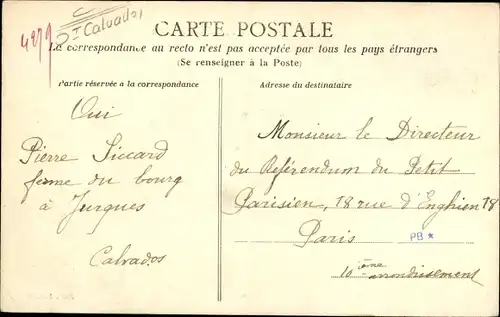 4279
Calvados
CARTE POSTALE
La correspondance au recto n'est pas acceptée par tous les pays étrangers
(Se renseigner à la Poste)
Partie réservée à la correspondance
Adresse du destinataire
Oui
Pierre Siccard
ferme du bourg
à Jurques
Calvados
Monsieur le Directeur
du Référendum du Petit
Parisien, 18 rue d'Enghien 18
Paris
PB*
10ième arrondissement